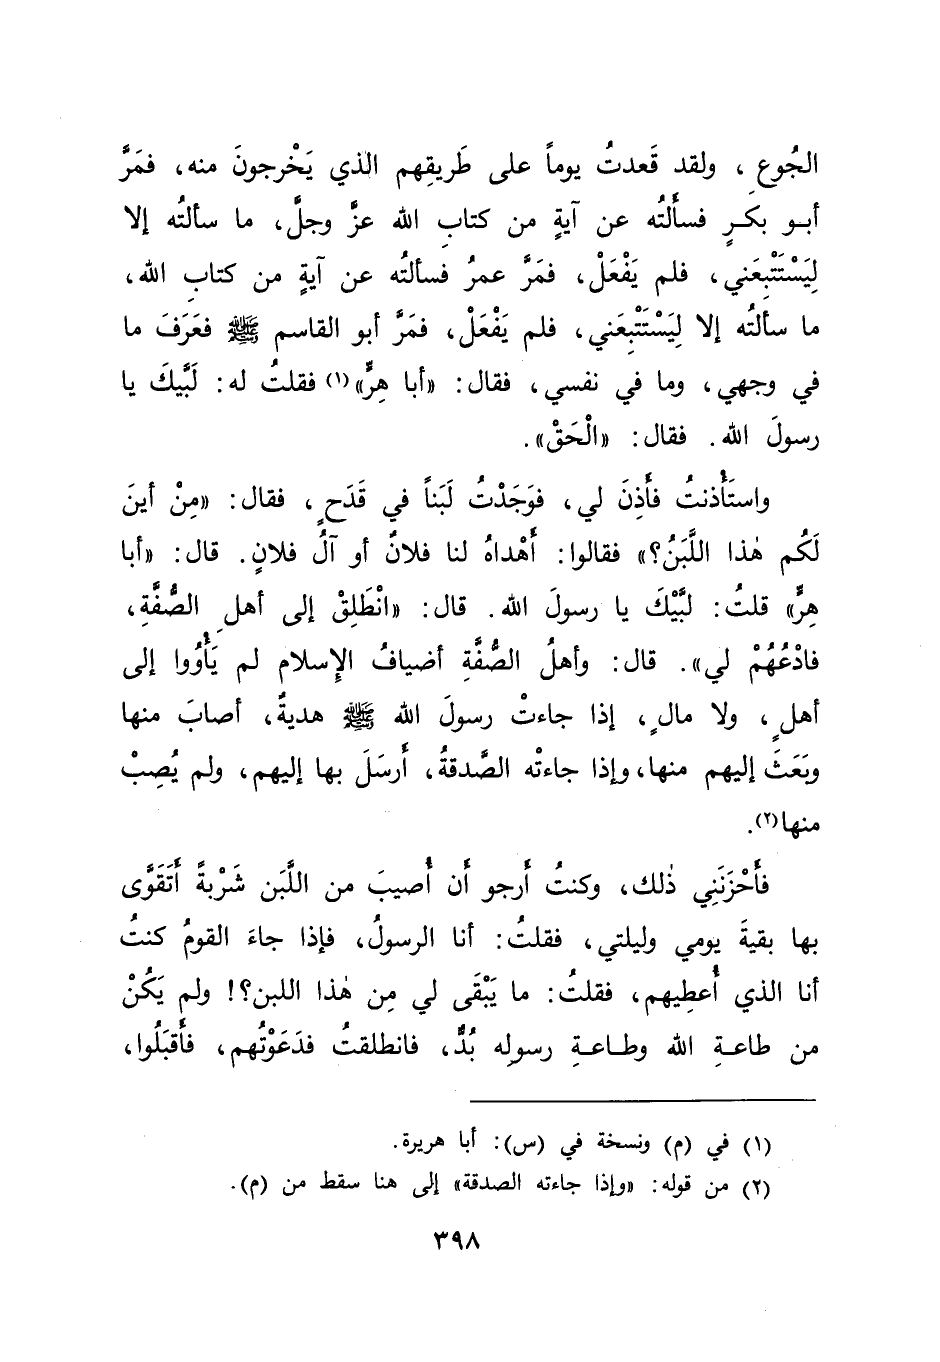 الجُوعِ، ولقد قَعدتُ يوماً على طَريقِهم الذي يَخْرجونَ منه، فمَرَّ
أبو بكرٍ فسأَلتُه عن آيةٍ من كتابِ الله عزَّ وجلَّ، ما سألتُه إلا
لِيَسْتَتْبِعَني، فلم يَفْعَلْ، فمَرَّ عمرُ فسألتُه عن آيةٍ من كتابِ الله،
ما سألتُه إلا لِيَسْتَتْبِعَني، فلم يَفْعَلْ، فمَرَّ أبو القاسم ﷺ فعَرَفَ ما
في وجهي، وما في نفسي، فقال: «أبا هِرٍّ»(١) فقلتُ له: لَبَّيكَ يا
رسولَ الله. فقال: «الْحَقْ».
واستَأْذنتُ فأَذِنَ لي، فوَجَدْتُ لَبَناً في قَدَحٍ، فقال: «مِنْ أينَ
لَكُم هٰذا اللَّبَنُ؟» فقالوا: أَهْداهُ لنا فلانٌ أو آلُ فلانٍ. قال: «أبا
هِرٍّ» قلتُ: لبَّيْكَ يا رسولَ الله. قال: «انْطَلِقْ إلى أهلِ الصُّفَّةِ،
فادْعُهُمْ لي». قال: وأهلُ الصُّفَّةِ أضيافُ الإِسلام لم يَأْوُوا إلى
أهلٍ، ولا مالٍ، إذا جاءتْ رسولَ الله ﷺ هديةٌ، أصابَ منها
وبَعَثَ إليهم منها، وإذا جاءتْه الصَّدقةُ، أَرسَلَ بها إليهم، ولم يُصِبْ
منها(٢).
فأَحْزَنَنِي ذٰلك، وكنتُ أَرجو أَن أُصيبَ من اللَّبَن شَرْبةً أَتَقَوَّى
بها بقيةَ يومي وليلتي، فقلتُ: أنا الرسولُ، فإذا جاءَ القومُ كنتُ
أنا الذي أُعطِيهم، فقلتُ: ما يَبْقَى لي مِن هٰذا اللبن؟! ولم يَكُنْ
من طاعةِ الله وطاعةِ رسولِه بُدٌّ، فانطلقتُ فدَعَوْتُهم، فأَقبَلُوا،
(١) في (م) ونسخة في (س): أبا هريرة.
(٢) من قوله: «وإذا جاءته الصدقة» إلى هنا سقط من (م).
٣٩٨